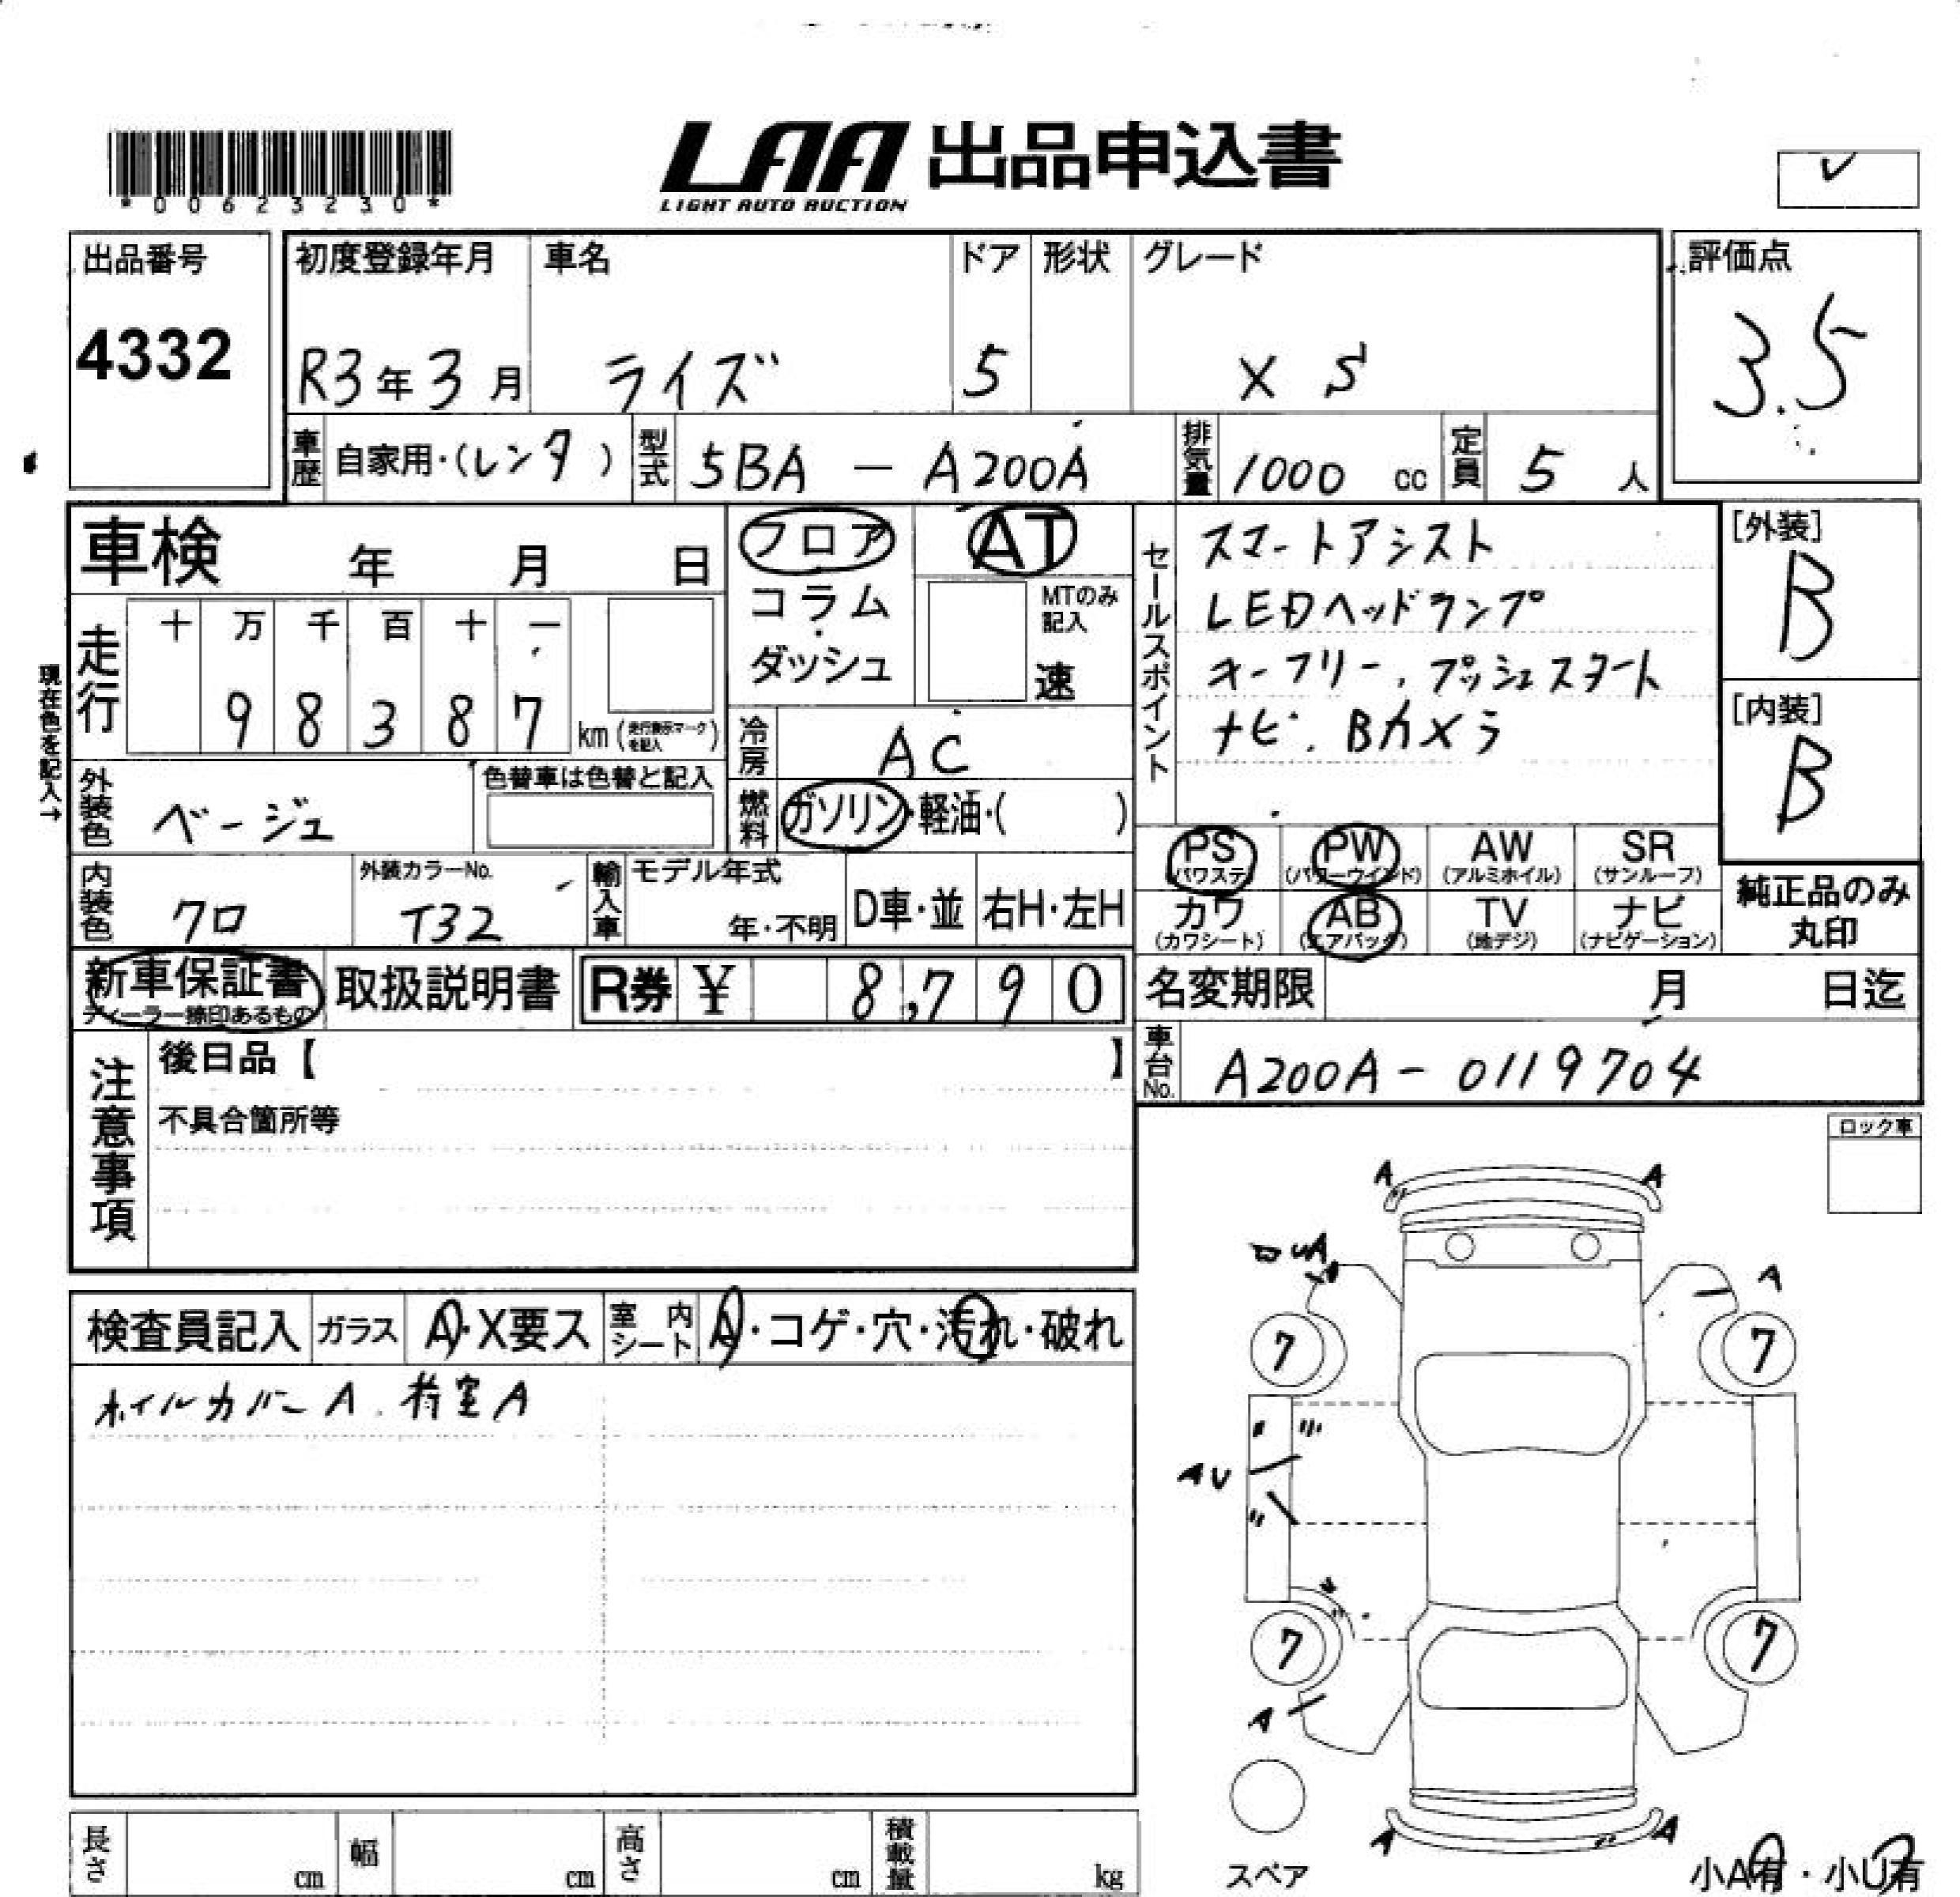 *00623230*
LAA 出品申込書
LIGHT AUTO AUCTION
出品番号
4332
初度登録年月
R3年3月
車名
ライズ
ドア
5
形状
グレード
X S
評価点
3.5
車歴 自家用・(レンタ)
型式 5BA - A200A
排気量 1000 cc
定員 5 人
車検 年 月 日
フロア
コラム
・
ダッシュ
AT
MTのみ
記入
速
走行
十 万 千 百 十 一
9 8 3 8 7 km (走行表示マークを記入)
現在色を記入→
冷房 AC
燃料 ガソリン・軽油・( )
外装色 ベージュ
色替車は色替と記入
内装色 クロ
外装カラーNo.
T32
輸入車 モデル年式
年・不明
D車・並
右H・左H
セールスポイント
スマートアシスト
LEDヘッドランプ
キーフリー、プッシュスタート
ナビ、Bカメラ
[外装]
B
[内装]
B
PS (パワステ)
PW (パワーウインド)
AW (アルミホイル)
SR (サンルーフ)
カワ (カワシート)
AB (エアバック)
TV (地デジ)
ナビ (ナビゲーション)
純正品のみ
丸印
新車保証書
ディーラー捺印あるもの
取扱説明書
R券 ¥ 8,790
名変期限 月 日迄
車台No. A200A-0119704
注意事項
後日品【 】
不具合箇所等
ロック車
検査員記入
ガラス A・X要ス
室内シート A・コゲ・穴・汚れ・破れ
ホイルカバーA、荷室A
A A
UA
A
7 7
〃
AU
〃
7 7
A
A A
スペア
小A有・小U有
長さ cm
幅 cm
高さ cm
積載量 kg